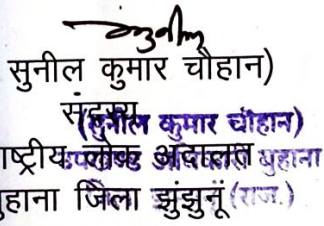 सुनील कुमार चौहान)
सदस्य
(सुनील कुमार चौहान)
ाष्ट्रीय लोक अदालत
बुहाना
ुहाना जिला झुंझुनूं (राज.)